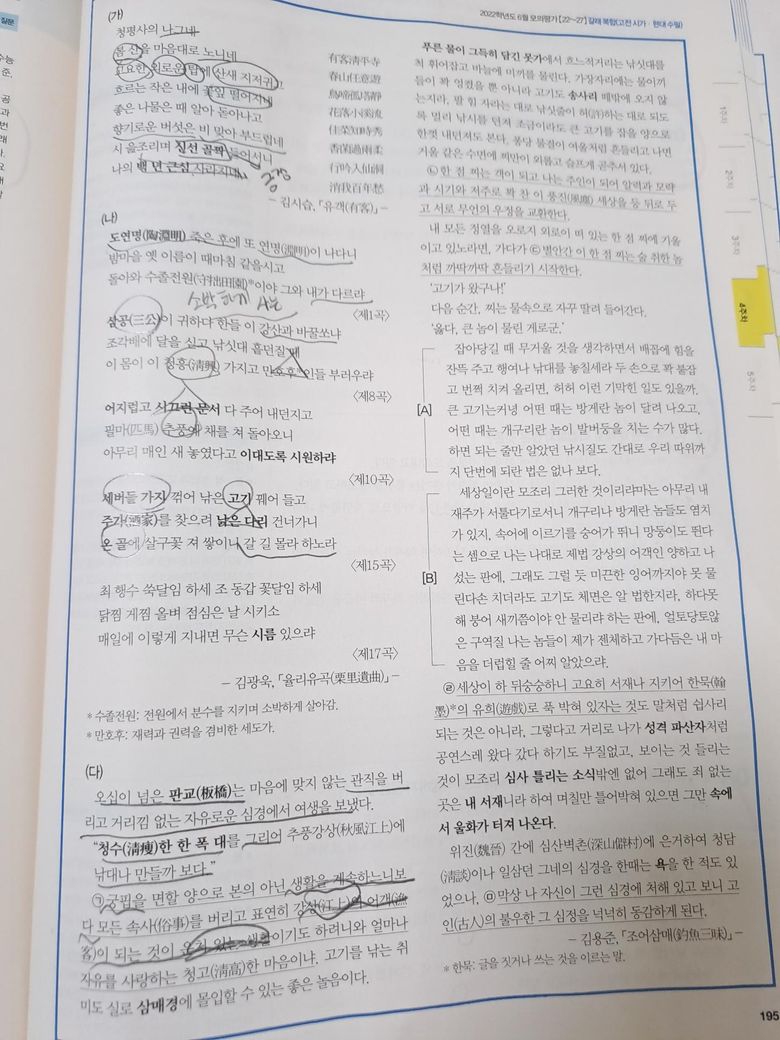 2022학년도 6월 모의평가【22~27】갈래 복합(고전 시가·현대 수필)
(가)
청평사의 나그네
봄 산을 마음대로 노니네
고요한 외로운 탑에 산새 지저귀고
흐르는 작은 내에 꽃잎 떨어지네
좋은 나물은 때 알아 돋아나고
향기로운 버섯은 비 맞아 부드럽네
시 읊조리며 신선 골짝 들어서니
나의 백 년 근심 사라지네
有客清平寺
春山任意遊
鳥啼孤塔靜
花落小溪流
佳菜知時秀
香菌過雨柔
行吟入仙洞
消我百年愁
- 김시습, 「유객(有客)」 -
(나)
도연명(陶淵明) 죽은 후에 또 연명(淵明)이 나다니
밤마을 옛 이름이 때마침 같을시고
돌아와 수졸전원(守拙田園)*이야 그와 내가 다르랴
소박하게 사는
〈제1곡〉
삼공(三公)이 귀하다 한들 이 강산과 바꿀쏘냐
조각배에 달을 싣고 낚싯대 흩던질 때
이 몸이 이 청흥(淸興) 가지고 만호후*인들 부러우랴
〈제8곡〉
어지럽고 시끄런 문서 다 주어 내던지고
필마(匹馬) 추풍에 채를 쳐 돌아오니
아무리 매인 새 놓였다고 이대도록 시원하랴
〈제10곡〉
세버들 가지 꺾어 낚은 고기 꿰어 들고
주가(酒家)를 찾으려 낡은 다리 건너가니
온 골에 살구꽃 져 쌓이니 갈 길 몰라 하노라
〈제15곡〉
최 행수 쑥달임 하세 조 동갑 꽃달임 하세
닭찜 게찜 올벼 점심은 날 시키소
매일에 이렇게 지내면 무슨 시름 있으랴
〈제17곡〉
- 김광욱, 「율리유곡(栗里遺曲)」 -
* 수졸전원: 전원에서 분수를 지키며 소박하게 살아감.
* 만호후: 재력과 권력을 겸비한 세도가.
(다)
오십이 넘은 판교(板橋)는 마음에 맞지 않는 관직을 버
리고 거리낌 없는 자유로운 심경에서 여생을 보냈다.
“청수(淸瘦)한 한 폭 대를 그리어 추풍강상(秋風江上)에
낚대나 만들까 보다.”
㉠궁핍을 면할 양으로 본의 아닌 생활을 계속하느니보
다 모든 속사(俗事)를 버리고 표연히 강상(江上)의 어객(漁
客)이 되는 것이 운치 있는 생활이기도 하려니와 얼마나
자유를 사랑하는 청고(淸高)한 마음이냐. 고기를 낚는 취
미도 실로 삼매경에 몰입할 수 있는 좋은 놀음이다.
푸른 물이 그득히 담긴 못가에서 흐느적거리는 낚싯대를
척 휘어잡고 바늘에 미끼를 물린다. 가장자리에는 물이끼
들이 꽉 엉켰을 뿐 아니라 고기도 송사리 떼밖에 오지 않
는지라, 팔 힘 자라는 대로 낚싯줄이 허(許)하는 대로 되도
록 멀리 낚시를 던져 조금이라도 큰 고기를 잡을 양으로
한껏 내던져도 본다. 퐁당 물결이 여울처럼 흔들리고 나면
거울 같은 수면에 찌만이 외롭고 슬프게 곧추서 있다.
㉡한 점 찌는 객이 되고 나는 주인이 되어 알력과 모략
과 시기와 저주로 꽉 찬 이 풍진(風塵) 세상을 등 뒤로 두
고 서로 무언의 우정을 교환한다.
내 모든 정열을 오로지 외로이 떠 있는 한 점 찌에 기울
이고 있노라면, 가다가 ㉢별안간 이 한 점 찌는 술 취한 놈
처럼 까딱까딱 흔들리기 시작한다.
‘고기가 왔구나!’
다음 순간, 찌는 물속으로 자꾸 딸려 들어간다.
‘옳다, 큰 놈이 물린 게로군.’
[A]
잡아당길 때 무거울 것을 생각하면서 배꼽에 힘을
잔뜩 주고 행여나 낚대를 놓칠세라 두 손으로 꽉 붙잡
고 번쩍 치켜 올리면, 허허 이런 기막힌 일도 있을까.
큰 고기는커녕 어떤 때는 방게란 놈이 달려 나오고,
어떤 때는 개구리란 놈이 발버둥을 치는 수가 많다.
하면 되는 줄만 알았던 낚시질도 간대로 우리 따위까
지 단번에 되란 법은 없나 보다.
[B]
세상일이란 모조리 그러한 것이리랴마는 아무리 내
재주가 서툴다기로서니 개구리나 방게란 놈들도 염치
가 있지, 속어에 이르기를 숭어가 뛰니 망둥이도 뛴다
는 셈으로 나는 나대로 제법 강상의 어객인 양하고 나
섰는 판에, 그래도 그럴 듯 미끈한 잉어까지야 못 물
린다손 치더라도 고기도 체면은 알 법한지라, 하다못
해 붕어 새끼쯤이야 안 물리랴 하는 판에, 얼토당토않
은 구역질 나는 놈들이 제가 젠체하고 가다듬은 내 마
음을 더럽힐 줄 어찌 알았으랴.
㉣세상이 하 뒤숭숭하니 고요히 서재나 지키어 한묵(翰
墨)*의 유희(遊戱)로 푹 박혀 있자는 것도 말처럼 쉽사리
되는 것은 아니라, 그렇다고 거리로 나가 성격 파산자처럼
공연스레 왔다 갔다 하기도 부질없고, 보이는 것 들리는
것이 모조리 심사 틀리는 소식밖엔 없어 그래도 죄 없는
곳은 내 서재니라 하여 며칠만 틀어박혀 있으면 그만 속에
서 울화가 터져 나온다.
위진(魏晉) 간에 심산벽촌(深山僻村)에 은거하여 청담
(淸談)이나 일삼던 그네의 심경을 한때는 욕을 한 적도 있
었으나, ㉤막상 나 자신이 그런 심경에 처해 있고 보니 고
인(古人)의 불우한 그 심정을 넉넉히 동감하게 된다.
- 김용준, 「조어삼매(釣魚三昧)」 -
* 한묵: 글을 짓거나 쓰는 것을 이르는 말.
1주차
2주차
3주차
4주차
5주차
195